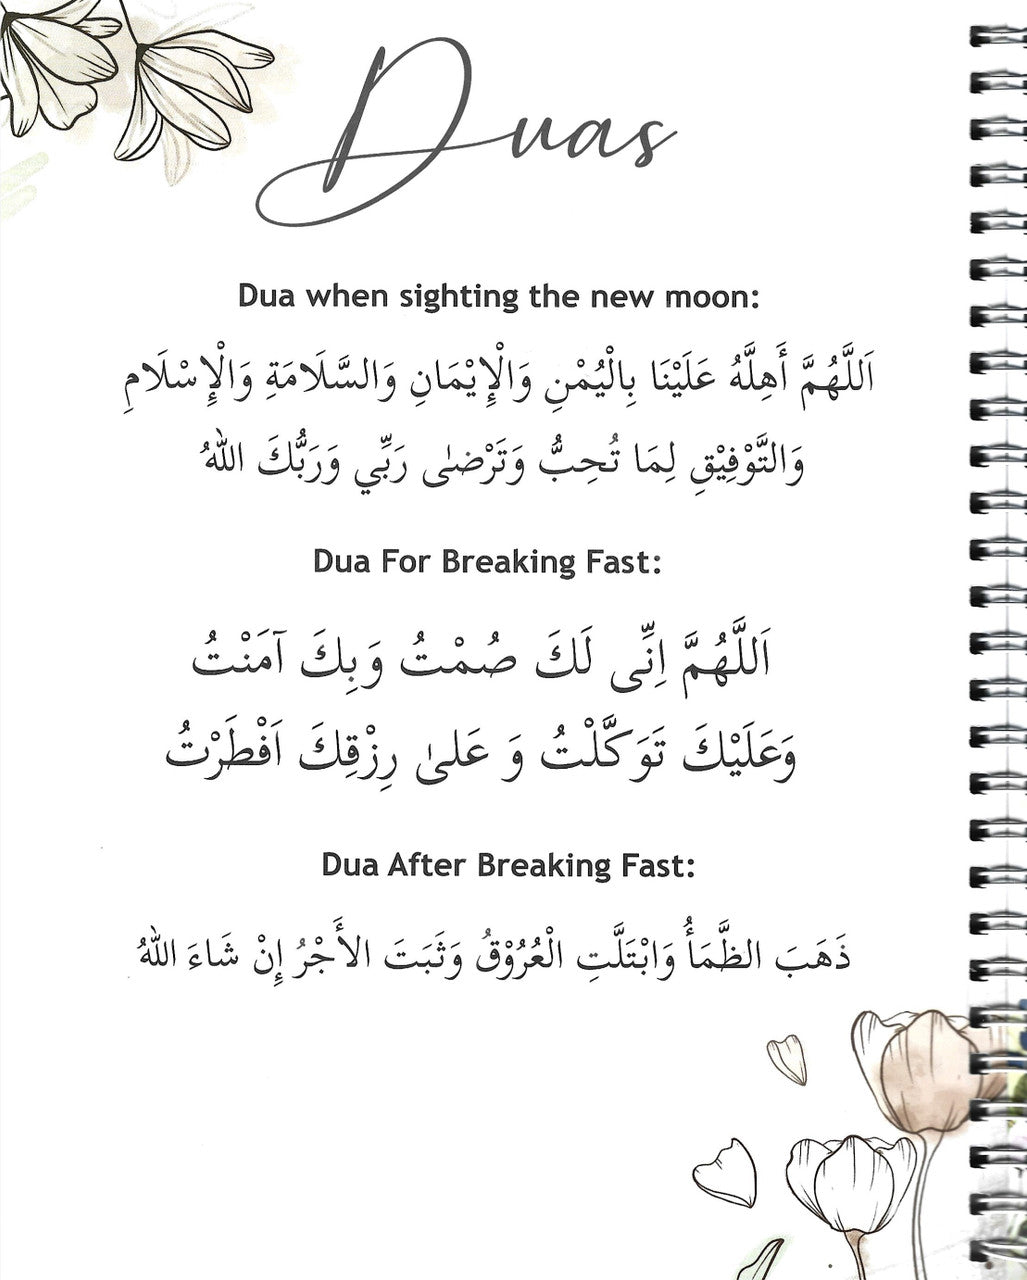 Duas
Dua when sighting the new moon:
اَللَّهُمَّ أَهِلَّهُ عَلَيْنَا بِالْيُمْنِ وَالْإِيْمَانِ وَالسَّلَامَةِ وَالْإِسْلَامِ
وَالتَّوْفِيْقِ لِمَا تُحِبُّ وَتَرْضٰى رَبِّي وَرَبُّكَ اللهُ
Dua For Breaking Fast:
اَللَّهُمَّ اِنِّى لَكَ صُمْتُ وَبِكَ آمَنْتُ
وَعَلَيْكَ تَوَكَّلْتُ وَ عَلىٰ رِزْقِكَ اَفْطَرْتُ
Dua After Breaking Fast:
ذَهَبَ الظَّمَأُ وَابْتَلَّتِ الْعُرُوْقُ وَثَبَتَ الأَجْرُ إِنْ شَاءَ اللهُ